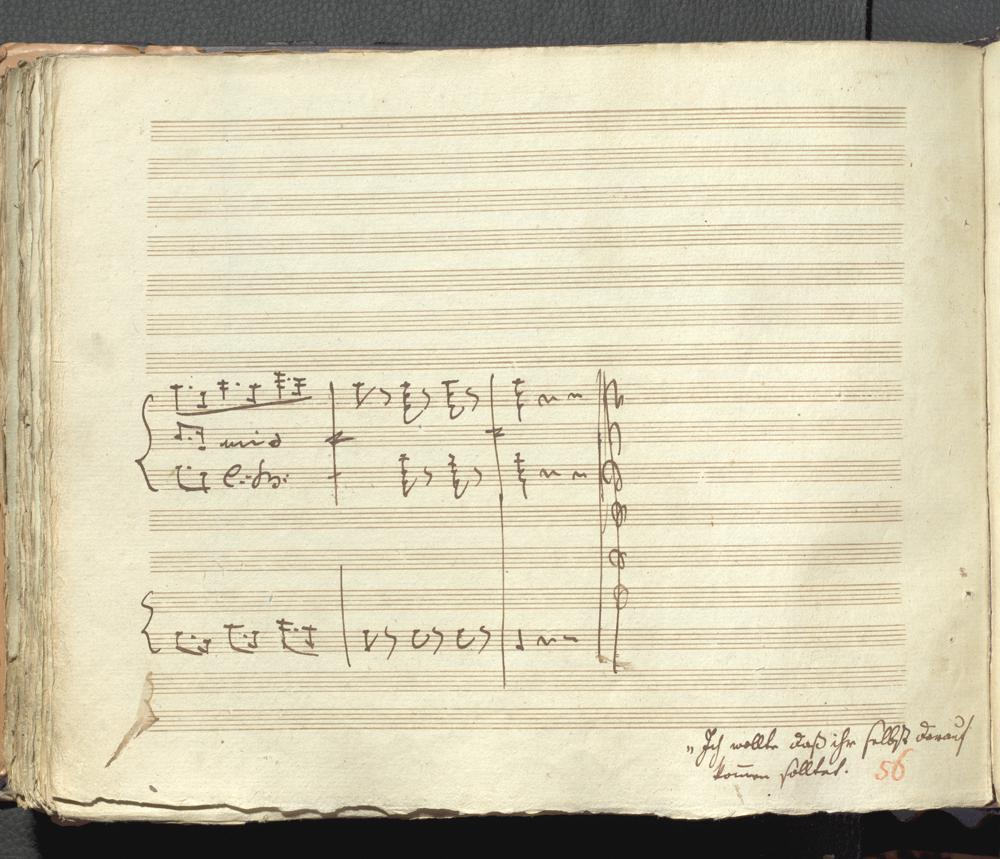 „Ich wollte daß ihr selbst darauf
kom̅en solltet.
56